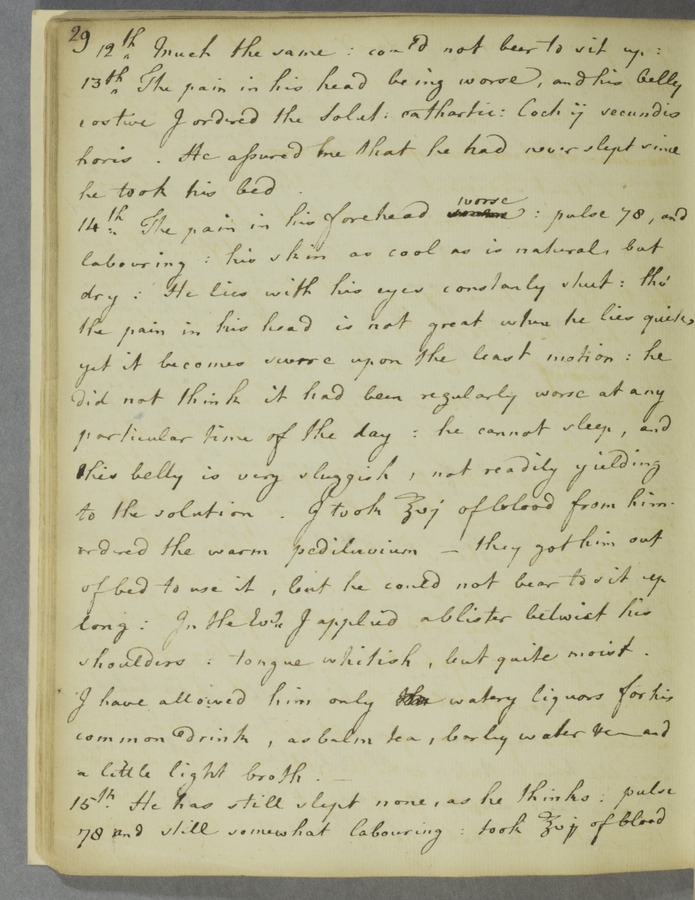 29
12th Much the same : could not bear to sit up :
13th The pain in his head being worse, and his belly
costive I ordered the Solut: cathartic: Coch ij secundis
horis . He assured me that he had never slept since
he took his bed .
14th The pain in his forehead worse : pulse 78, and
labouring : his skin as cool as is natural, but
dry : He lies with his eyes constanly shut : tho'
the pain in his head is not great when he lies quiet,
yet it becomes severe upon the least motion : he
did not think it had been regularly worse at any
particular time of the day : he cannot sleep, and
his belly is very sluggish , not readily yielding
to the solution . I took ℥vj of blood from him.
ordered the warm pediluvium — they got him out
of bed to use it , but he could not bear to sit up
long : In the Evg. I applied a blister betwixt his
shoulders : tongue whitish , but quite moist .
I have allowed him only watery liquors for his
common drink , as balm tea , barley water and
a little light broth . —
15th He has still slept none, as he thinks : pulse
78 and still somewhat labouring : took ℥vj of blood